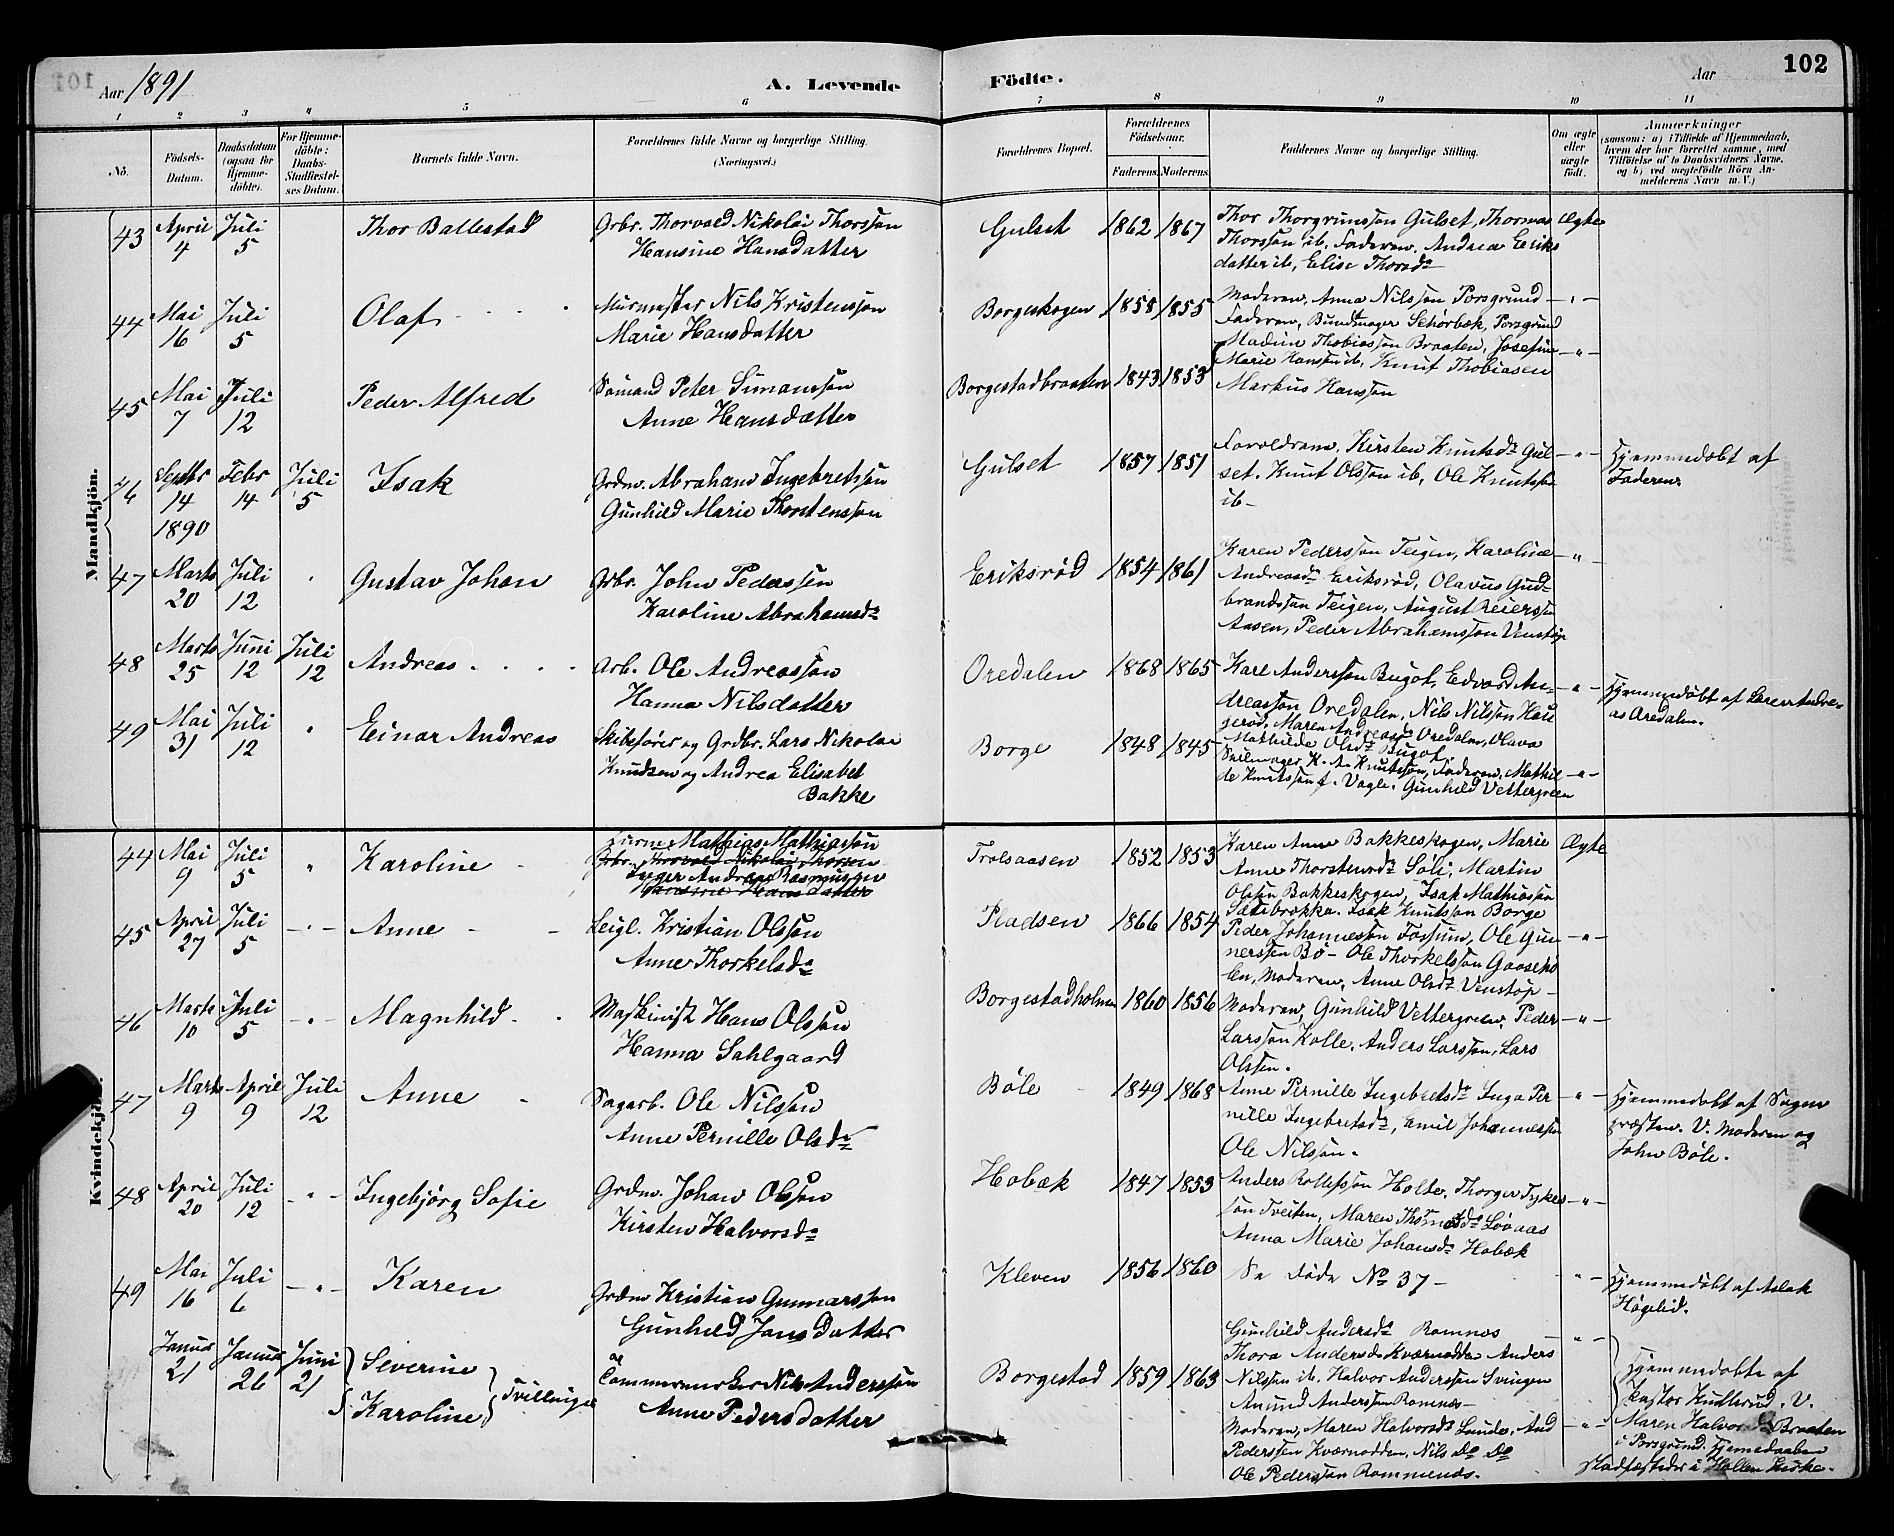 Aar 1891
A. Levende
Födte.
Aar
102
1 2 3 4 5 6 7 8 9 10 11
No.
Födsels-Datum.
Daabsdatum (ogsaa for Hjemme-döbte).
For Hjemme-döbte: Daabs-Stadfæstel-ses Datum.
Barnets fulde Navn.
Forældrenes fulde Navne og borgerlige Stilling. (Næringsvei.)
Forældrenes Bopæl.
Forældrenes Födselsaar.
Faderens. Moderens.
Faddernes Navne og borgerlige Stilling.
Om ægte eller uægte födt.
Anmærkninger
(saasom: a) i Tilfælde af Hjemmedaab, hvem der har forrettet samme, med Tilföielse af to Daabsvidners Navne, og b) ved uægtefödte Börn An-melderens Navn m. V.)
Mandkjön.
43 April 4 Juli 5 Thor Ballestad
Grbr. Thorvald Nikolai Thorssøn
Hansine Hansdatter
Gulset 1862 1867
Thor Thorgrimssøn Gulset, Thomas
Thorssøn ib, Faderen, Andrea Eriks
datter ib, Elise Thorsdr
Ægte
44 Mai 16 Juli 5 Olaf
Murmester Nils Kristenssøn
Marie Hansdatter
Borgeskogen 1858 1855
Moderen, Anna Nilssøn Porsgrund
Faderen, Bundtmager Porsgrund
45 Mai 7 Juli 12 Peder Alfred
Sømand Peter Simonssøn
Anne Hansdatter
Borgestadbraaten 1843 1853
Thobiassøn Braaten, Josefine
Marie Hanssøn ib, Knut Thobiasen
Markus Hanssøn
46 Septbr 14 1890 Febr 14 Juli 5 Isak
Grdm. Abraham Ingebretssøn
Gunhild Marie Thorstenssøn
Gulset 1857 1851
Forældrene, Kirsten Knutsdr Gul
set. Knut Olssøn ib, Ole Knutssøn
ib
Hjemmedøbt af
Faderen
47 Marts 20 Juli 12 Gustav Johan
Grbr. John Pederssøn
Karoline Abrahamsdr
Eriksrød 1854 1861
Karen Pederssøn Teigen, Karoline
Andreasdr Eriksrød, Olavus Gud-
brandssøn Teigen, August Reierssøn
Aasen, Peder Abrahamssøn Venstøp
48 Marts 25 Juni 12 Juli 12 Andreas
Arb. Ole Andreassøn
Hanna Nilsdatter
Oredalen 1868 1865
Karl Anderssøn Bugot, Edvard An-
dreassøn Oredalen, Nils Nilssøn
Maren Andreasdr Oredalen, Olava
Mathilde Olsdr Bugot
Hjemmedøbt af Søren Andre-
as Oredalen.
49 Mai 31 Juli 12 Einar Andreas
Skibsfører og Grdbr. Lars Nikolai
Knudsen og Andrea Elisabet
Bakke
Borge 1848 1845
Seilmager K. A. Knutssøn, Faderen, Mathil-
de Knutssøn f. Vagle. Gunhild Vettergreen
Kvindekjön.
44 Mai 9 Juli 5 Karoline
Mathias Mathiassøn
Grbr. Thorvald Nikolai Thorsen
Inger Andrea Rasmussen
Hansine Hansdatter
Trolsaasen 1852 1853
Karen Anne Bakkeskogen, Marie
Anne Thorstensdr Søli, Martin
Olssøn Bakkeskogen, Isak Mathiassøn
Sætebrokka. Isak Knutssøn Borge
Ægte
45 April 27 Juli 5 Anne
Leigl. Kristian Olssøn
Anne Thorkelsdr
Pladsen 1866 1854
Peder Johannessøn Fossum, Ole Gun
nerssøn Bø - Ole Thorkelssøn Gaasehø
len, Moderen, Anne Olsdr Venstøp
46 Marts 10 Juli 5 Magnhild
Maskinist Hans Olssøn
Hanna Sahlgaard
Borgestadholmen 1860 1856
Moderen, Gunhild Vettergreen, Peder
Larssøn Kolle. Anders Larssøn, Lars
Olssøn.
47 Marts 9 April 9 Juli 12 Anne
Sagarb. Ole Nilssøn
Anne Pernille Olsdr
Bøle 1849 1868
Anne Pernille Ingebretsdr Inga Per
nille Ingebretsdr, Emil Johannessøn
Ole Nilssøn.
Hjemmedøbt af Sogne
præsten. V. Moderen og
John Bøle.
48 April 20 Juli 12 Ingebjørg Sofie
Grdm. Johan Olssøn
Kirsten Halvorsdr
Hobæk 1847 1853
Anders Rollefssøn Holte, Thorger Tyke
søn Tveiten, Maren Thomasdr Løvaas
Anna Marie Johansdr Hobæk
49 Mai 16 Juli 6 Karen
Grdm Kristian Gunnarssøn
Gunhild Jansdatter
Kleven 1856 1860
Se Døde No 37 -
Hjemmedøbt af Aslak
Høgelid.
Januar 21 Januar 26 Juni 21
Severine
Karoline
Tvillinger
Tømmermerker Nils Anderssøn
Anne Pedersdatter
Borgestad 1859 1863
Gunhild Andersdr Romnes
Thora Andersdr Kværnodden Anders
Nilssøn ib. Halvor Anderssøn Svingen
Amund Anderssøn Romnes
Moderen, Maren Halvorsdr Lunde, And
Pederssøn Kværnodden, Nils Do Do
Ole Pederssøn Rommenæs.
Hjemmedøbte af
Pastor V.
Maren Halvorsdr Braaten
i Porsgrund. Hjemmedaaben
stadfæstedes i Hollen Kirke.